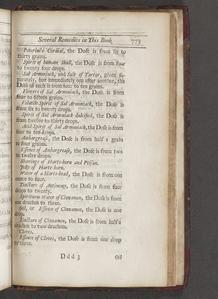 Several Remedies in This Book 773
Peterbul's Cordial, the Dose is from six to
thirty grains.
Spirit of human Skull, the Dose is from four
to twenty four drops.
Sal Armoniack, and Salt of Tartar, given se-
parately, but immediately one after another, the
Dose is of each from
Flowers of Sal Armoniack, the Dose is from
four to fifteen grains.
Volatile Spirit of Sal Armoniack, the Dose is
from six to
Spirit of Sal Armoniack dulcified, the Dose is
from twelve to thirty drops.
Acid Spirit of Sal Armoniack, the Dose is from
to
Ambergrease, the Dose is from half a grain
to four grains.
Essence of Ambergrease, the Dose is from two
to twelve drops.
Shavings of Harts-horn and
Jelly of Harts-horn.
Water of a Harts-head, the Dose is from one
ounce to four.
Tincture of Antimony, the Dose is from four
drops to twenty.
Spirituous Water of Cinnamon, the Dose is from
one Drachm to three.
Oil, or Essence of Cinnamon, the Dose is one
drop.
Tincture of Cinnamon, the Dose is from half a
drachm to two drachms.
Cloves.
Essence of Cloves, the Dose is from one drop
to three.
D d d 3 Oil